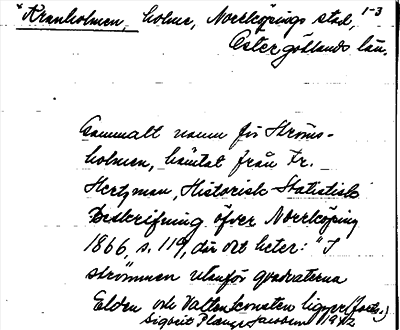 Kranholmen, holme, Norrköpings stad, 1-3
Östergötlands län.
Gammalt namn för Ströms-
holmen, hämtat från Fr.
Hertzman, Historisk Statistisk
Beskrifning öfver Norrköping
1866, s. 119, där det heter: "I
strömmen utanför qvadraterna
Elden och Vattenkonsten ligger (forts.)
Sigbrit Plænge Jacobson 1982